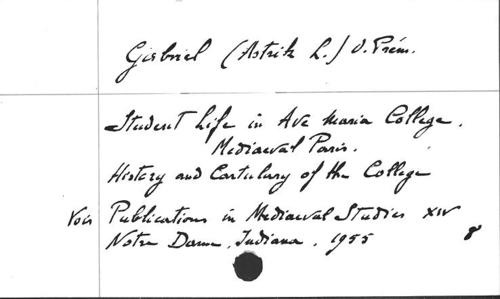 Gabriel (Astrik L.) O. Prém.
Student Life in Ave Maria College.
Mediaeval Paris.
History and Cartulary of the College
Voir Publications in Mediaeval Studies XIV
Notre Dame, Indiana. 1955 8